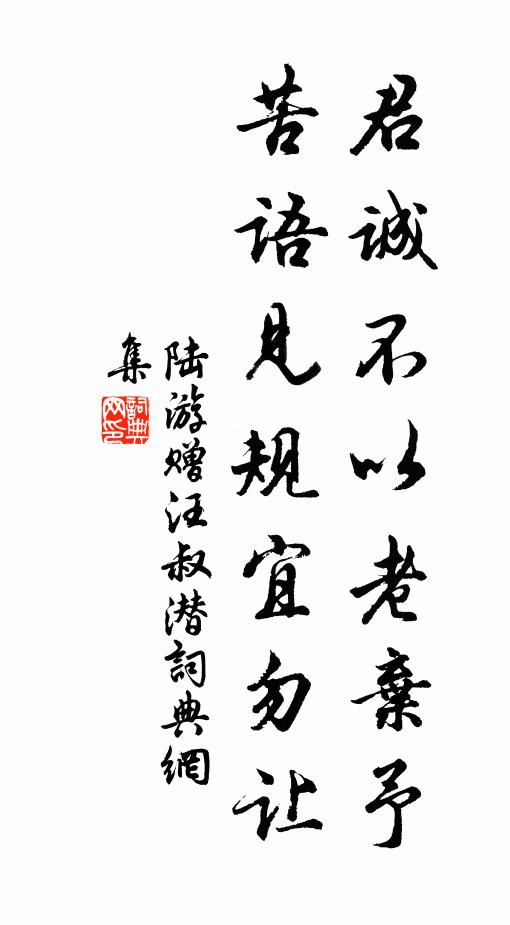 君诚不以老棄予
苦语见规宜勿让
陆游赠汪叔潜詞典網
集
詞典
网印